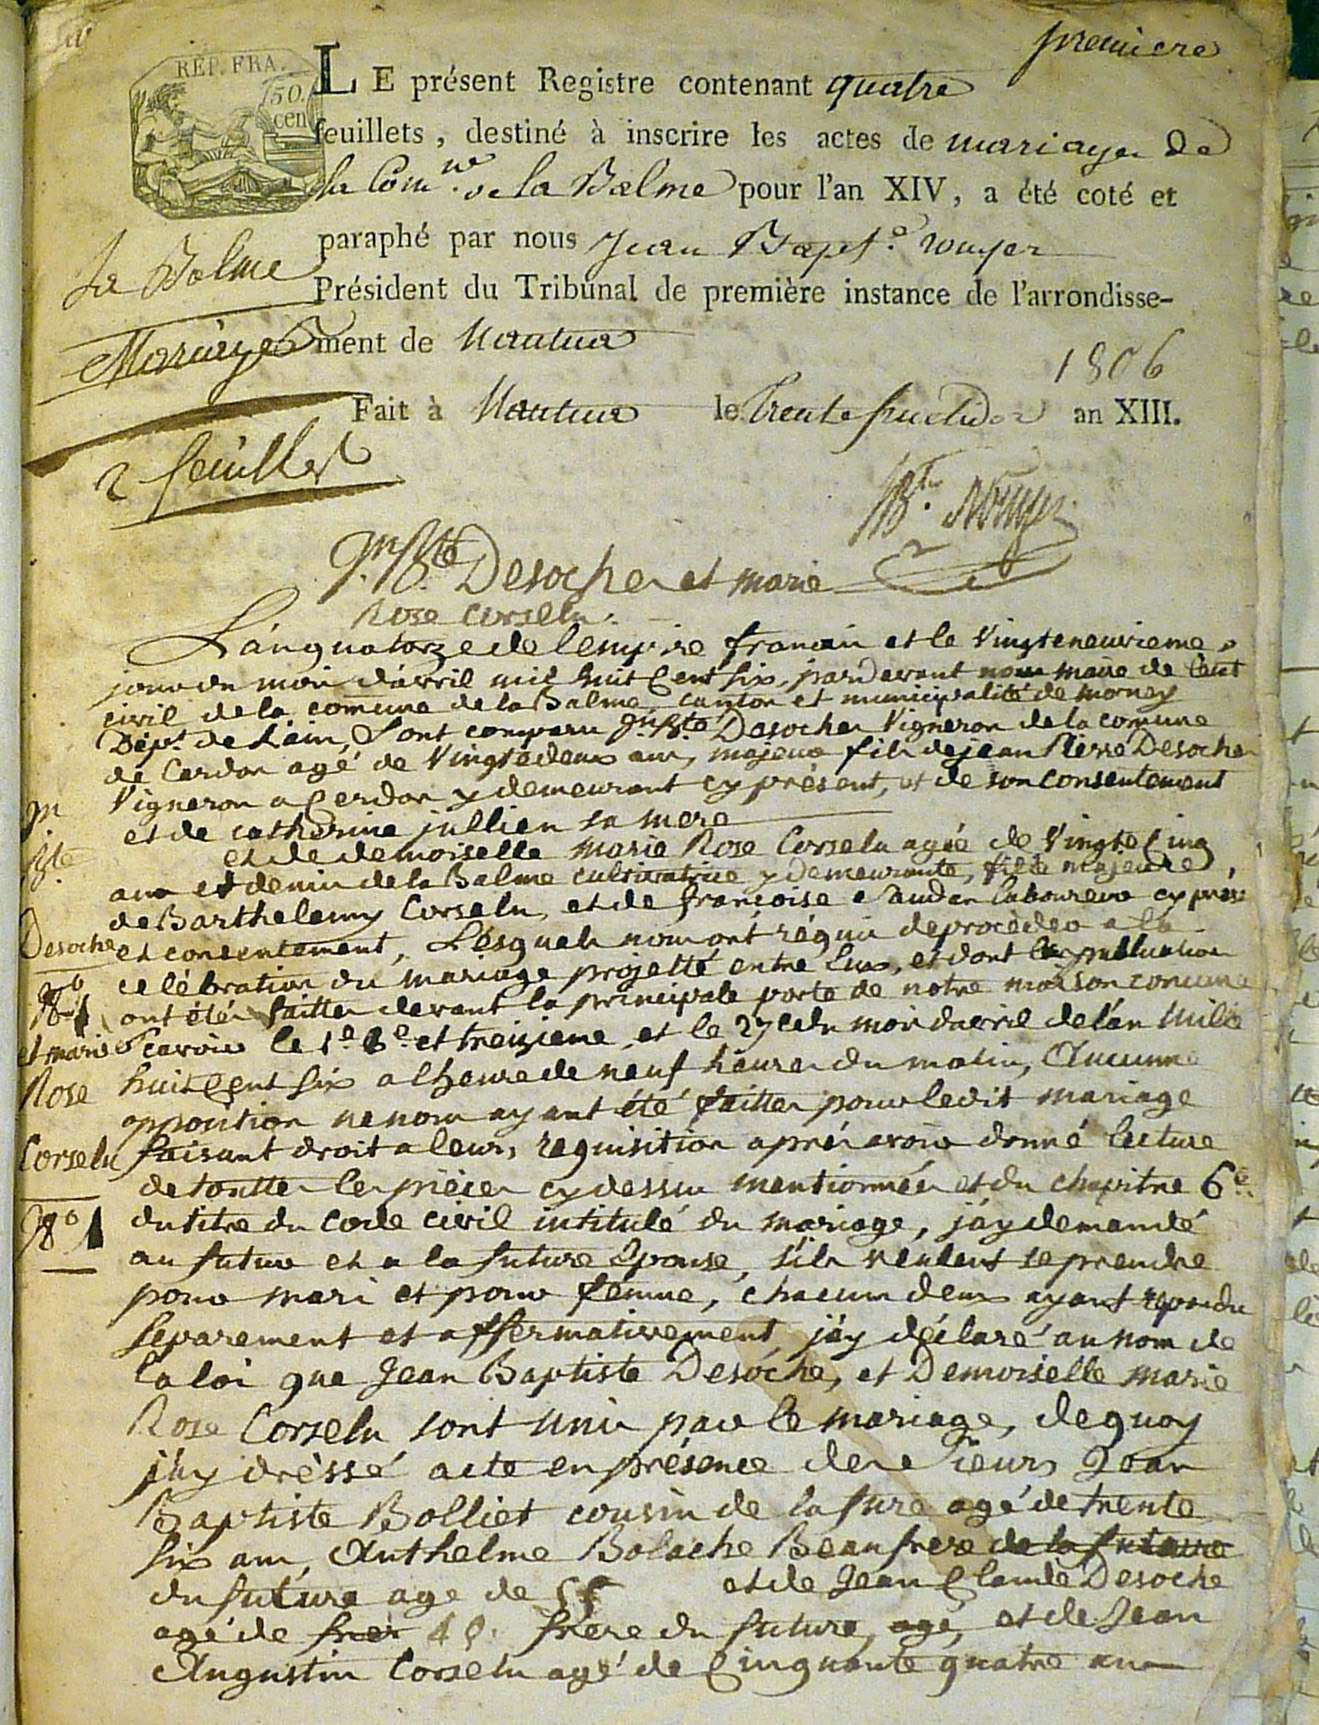 premiere
RÉP. FRA.
50.
cen
LE présent Registre contenant quatre
feuillets, destiné à inscrire les actes de mariages de
la Com.ne de la Balme pour l'an XIV, a été coté et
paraphé par nous Jean Bapt.e rouyer
Président du Tribunal de première instance de l'arrondisse-
ment de Nantua
1806
Fait à Nantua le trente fructidor an XIII.
La Balme
Mariages
2 feuillets
Jn Bte Desoches et marie
Rose Corselu.
L'an quatorze de lempire francais et le Vingteneuvieme
jour du mois d'avril mil huit Cent six, pardevant nous maire de l'etat
civil de la comune de la Balme, canton et municipalité de
Dépt. de Lain, Sont comparu Jn Bte Desoches Vigneron de la comune
de Cerdon agé de Vingtedeux ans, majeur fils de jean Pierre Desoches
Vigneron a Cerdon y demeurant cy présent, et de son consentement
et de catherine jullien sa mere
et de demoiselle marie Rose Corselu agée de Vingte Cinq
ans de la Balme cultivatrice y demeurante, fille majeure
de Barthelemy Corselu, et de francoise laboureur cy présent
et consentement, Lésquels nous ont réquis deprocèder a la
celébration du mariage projetté entre Eux, et dont les publication
ont étés faittes devant la principale porte de notre maison comune
Scavoir le 1e et treizieme, et le 27 e du mois d'avril de l'an mille
huit Cent Six a lheure de neuf heures du matin, Aucunne
opposition ne nous ayant été faittes pour ledit mariage
faisant droit a leurs requisition aprés avoir donné lecture
de touttes les pièces cy dessus mentionnées et du chapitre 6e
du titre du code civil intitulé du mariage, jáy demandé
au futur et a la future Epouse, s'ils veulent se prendre
pour mari et pour femme, chacun deux ayant repondu
separement et affermativement jáy déclaré au nom de
la loi que Jean Baptiste Desoche, et Demoiselle marie
Rose Corselu sont unis par le mariage, de quoy
j'ay drèssé acte en présence des Sieurs Jean
Baptiste Bolliet cousin de la fure agé de trente
six ans, Anthelme Bolache Beaufrere de la future
du future age de et de Jean Claude Desoche
agé de frer frére du future, agé, et de Jean
Augustin Corselu agé de Cinquante quatre ans
Jn
Bte
Desoche
No 1
et marie
Rose
Corselu
No 1